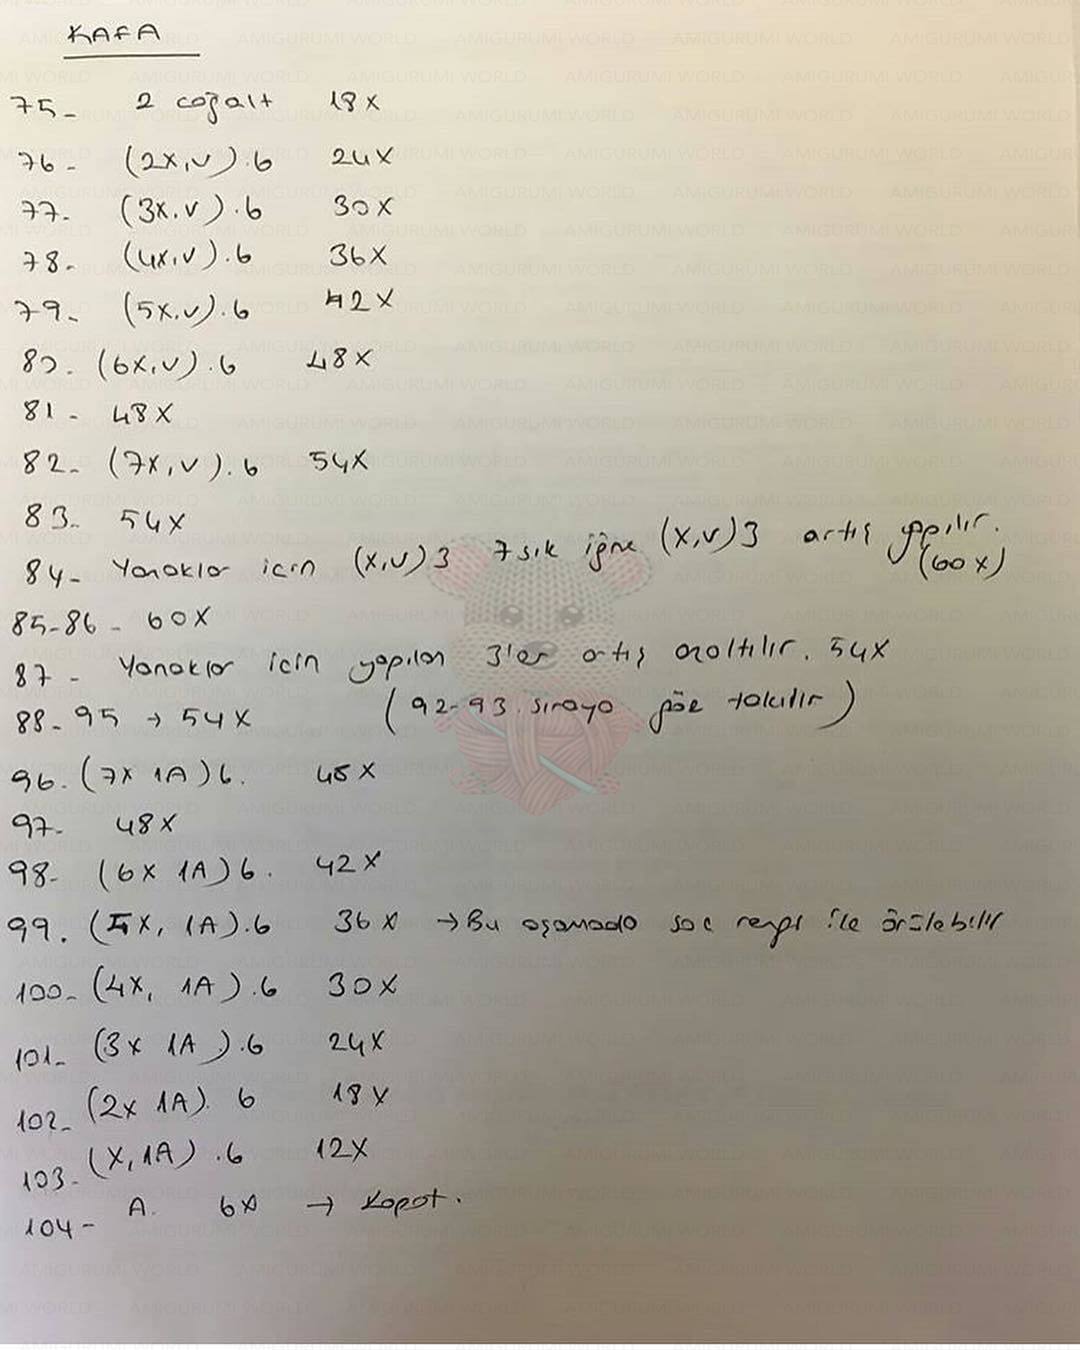 KAFA
75- 2 coğalt 18x
76- (2x,v).6 24x
77- (3x.v).6 30x
78- (4x,v).6 36x
79- (5x,v).6 42x
80. (6x,v).6 48x
81- 48x
82- (7x,v).6 54x
83.. 54x
84- Yanaklar icin (x,v)3 7 sık iğne (x,v)3 artış yapılır.
(60x)
85-86- 60x
87- Yanaklar icin yapılan 3'er artış azaltılır. 54x
88-95 → 54x (92-93. sıraya göz takılır)
96. (7x 1A)6. 48x
97- 48x
98- (6x 1A)6. 42x
99. (5x, 1A).6 36x → Bu aşamada sac rengi ile örülebilir
100- (4x, 1A).6 30x
101- (3x 1A).6 24x
102- (2x 1A). 6 18x
103- (x,1A).6 12x
104- A. 6x → Kapat.
AMIGURUMI WORLD